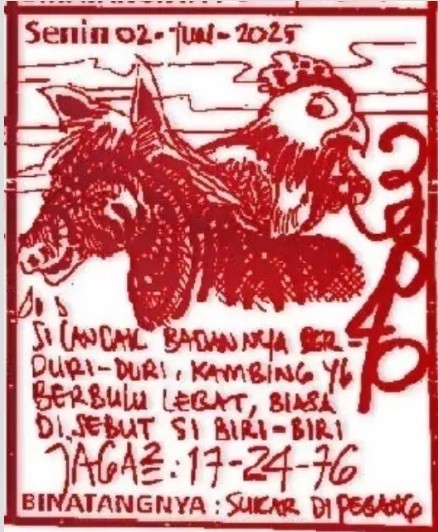 Senin 02-JUN-2025
SI LANDAK BADANNYA BER-
DURI-DURI, KAMBING YG
BERBULU LEBAT, BIASA
DI SEBUT SI BIRI-BIRI
JAGA2: 17-24-76
BINATANGNYA: SUKAR DI PEGANG